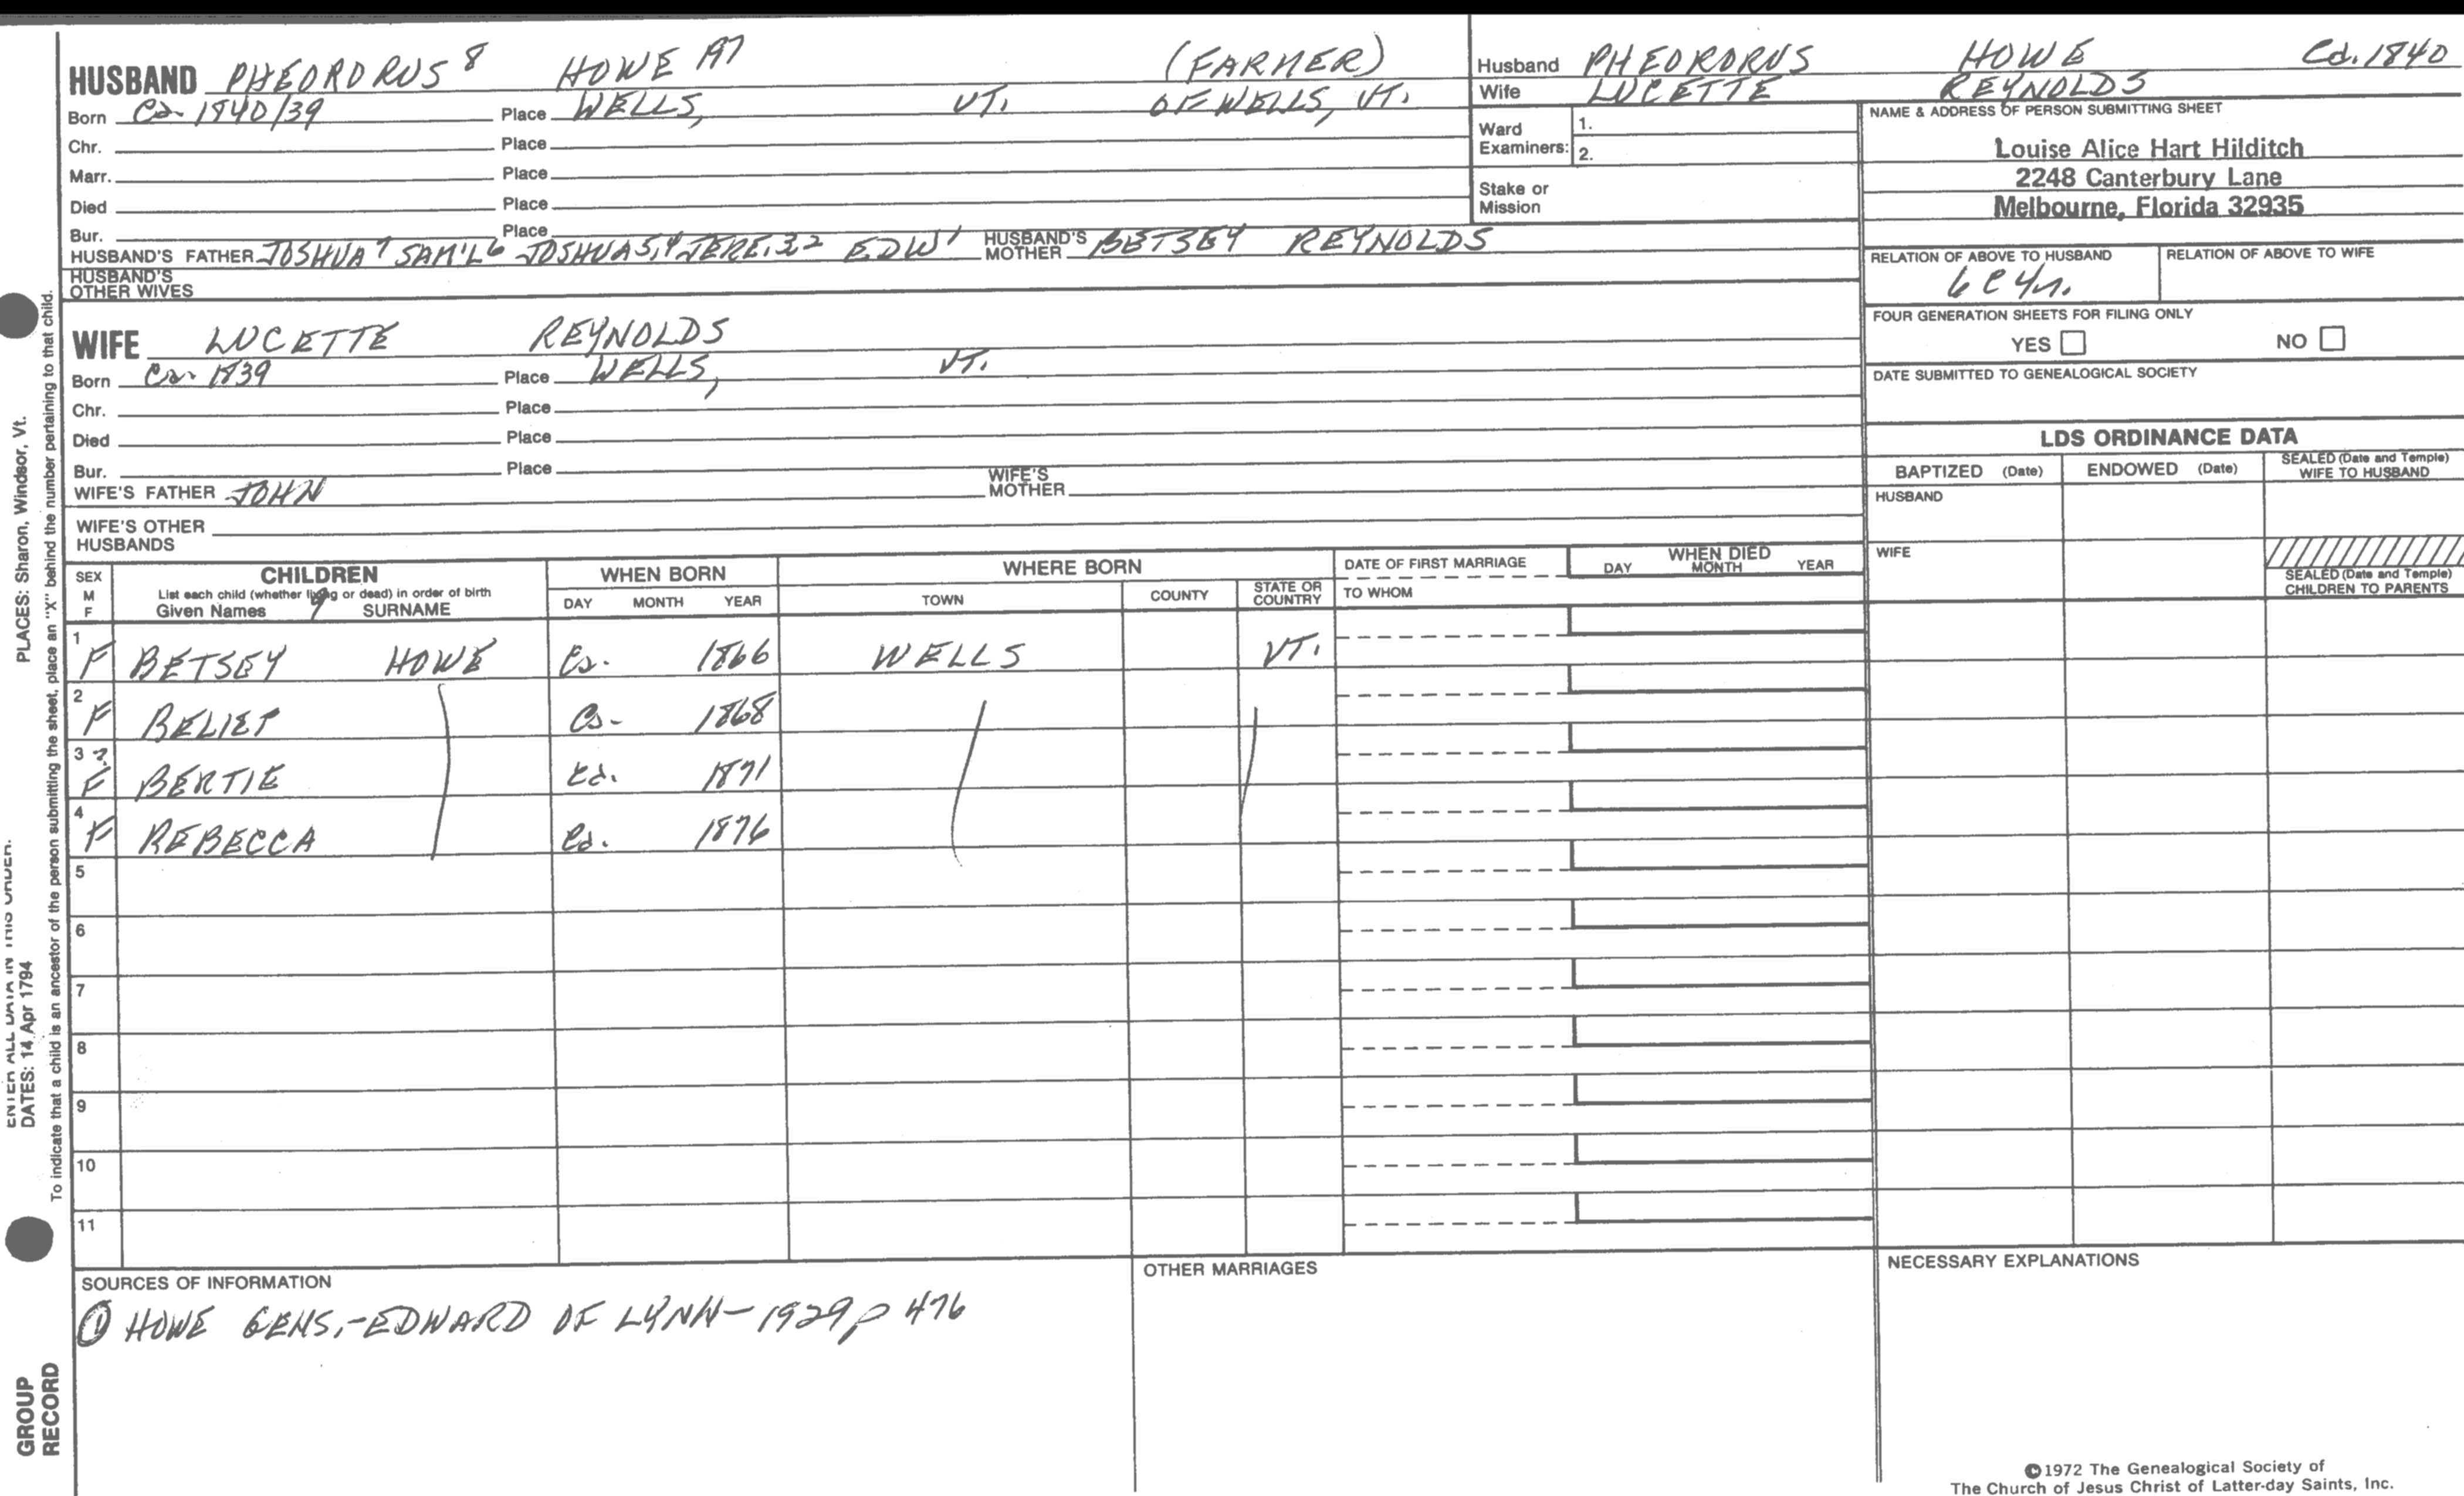 HUSBAND PHEORDRUS 8 HOWE (FARMER)
Born Ca. 1840/39 Place WELLS, VT. OF WELLS, VT.
Chr. Place
Marr. Place
Died Place
Bur. Place
HUSBAND'S FATHER JOSHUA 7 SAM'L 6 JOSHUA 5,4 JERE. 3,2 EDW 1 HUSBAND'S MOTHER BETSEY REYNOLDS
HUSBAND'S OTHER WIVES
Husband PHEORDRUS HOWE Ca. 1840
Wife LUCETTE REYNOLDS
Ward Examiners: 1.
2.
Stake or Mission
NAME & ADDRESS OF PERSON SUBMITTING SHEET
Louise Alice Hart Hilditch
2248 Canterbury Lane
Melbourne, Florida 32935
RELATION OF ABOVE TO HUSBAND RELATION OF ABOVE TO WIFE
6C4r.
FOUR GENERATION SHEETS FOR FILING ONLY
YES NO
DATE SUBMITTED TO GENEALOGICAL SOCIETY
WIFE LUCETTE REYNOLDS
Born Ca. 1839 Place WELLS, VT.
Chr. Place
Died Place
Bur. Place
WIFE'S FATHER JOHN WIFE'S MOTHER
WIFE'S OTHER HUSBANDS
LDS ORDINANCE DATA
BAPTIZED (Date) ENDOWED (Date) SEALED (Date and Temple) WIFE TO HUSBAND
HUSBAND
WIFE
SEALED (Date and Temple) CHILDREN TO PARENTS
SEX M F CHILDREN WHEN BORN WHERE BORN DATE OF FIRST MARRIAGE WHEN DIED
List each child (whether living or dead) in order of birth
Given Names 9 SURNAME DAY MONTH YEAR TOWN COUNTY STATE OR COUNTRY TO WHOM DAY MONTH YEAR
1 F BETSEY HOWE Ca. 1866 WELLS VT.
2 F BELIEF Ca. 1868
3 ? F BERTIE Ca. 1871
4 F REBECCA Ca. 1876
5
6
7
8
9
10
11
SOURCES OF INFORMATION
① HOWE GENS.-EDWARD OF LYNN-1929 p 476
OTHER MARRIAGES
NECESSARY EXPLANATIONS
©1972 The Genealogical Society of
The Church of Jesus Christ of Latter-day Saints, Inc.
PLACES: Sharon, Windsor, Vt.
ENTER ALL DATA IN THIS ORDER:
DATES: 14 Apr 1794
To indicate that a child is an ancestor of the person submitting the sheet, place an "X" behind the number pertaining to that child.
GROUP
RECORD